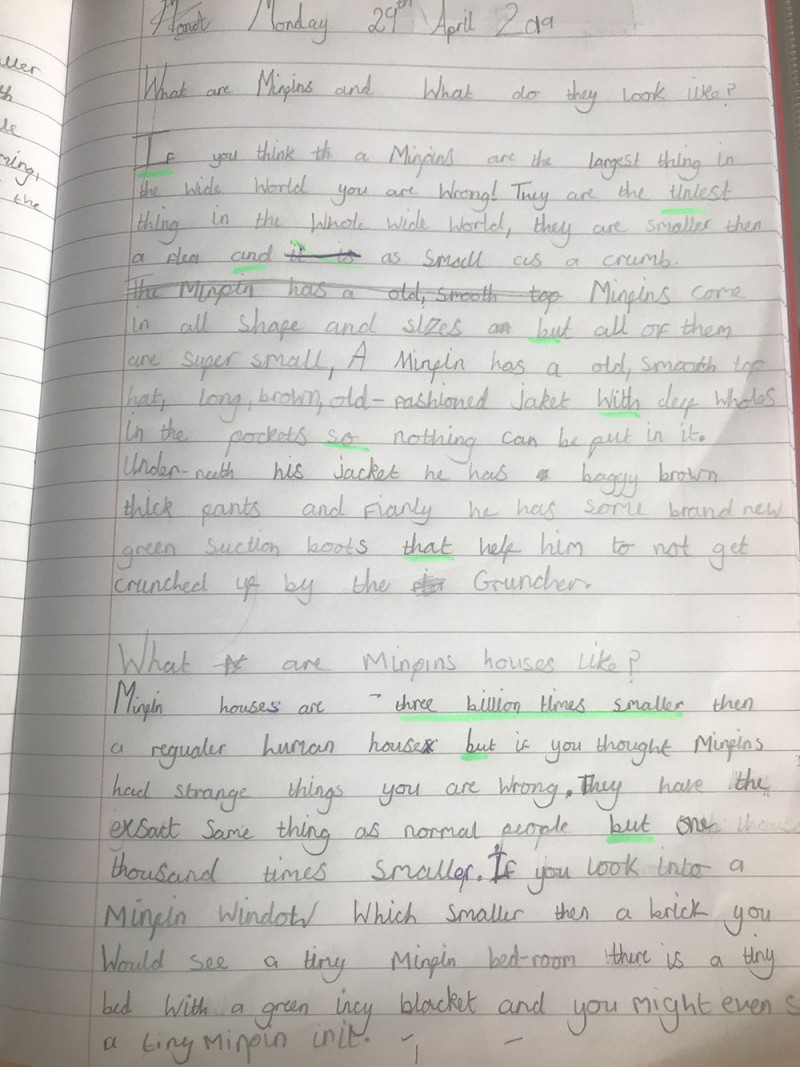 Monday 29th April 2019
What are Minpins and What do they look like?
If you think th a Minpins are the largest thing in
the wide World you are Wrong! They are the tiniest
thing in the Whole wide World, they are smaller then
a flea and it is as Small as a crumb.
The Minpin has a old, smooth top Minpins come
in all shape and sizes an but all of them
are super small, A Minpin has a old, smooth top
hat, long, brown, old-fashioned jaket With deep wholes
in the pockets so nothing can be put in it.
Under-neath his jacket he has a baggy brown
thick pants and Fianly he has some brand new
green Suction boots that help him to not get
crunched up by the Gruncher.
What are Minpins houses like?
Minpin houses are three billion times smaller then
a regualer human house but if you thought Minpins
had strange things you are Wrong. They have the
exsact Same thing as normal people but one
thousand times smaller. If you look into a
Minpin Window Which smaller then a brick you
Would see a tiny Minpin bed-room there is a tiny
bed With a green incy blacket and you might even s
a tiny Minpin init.
uller
the